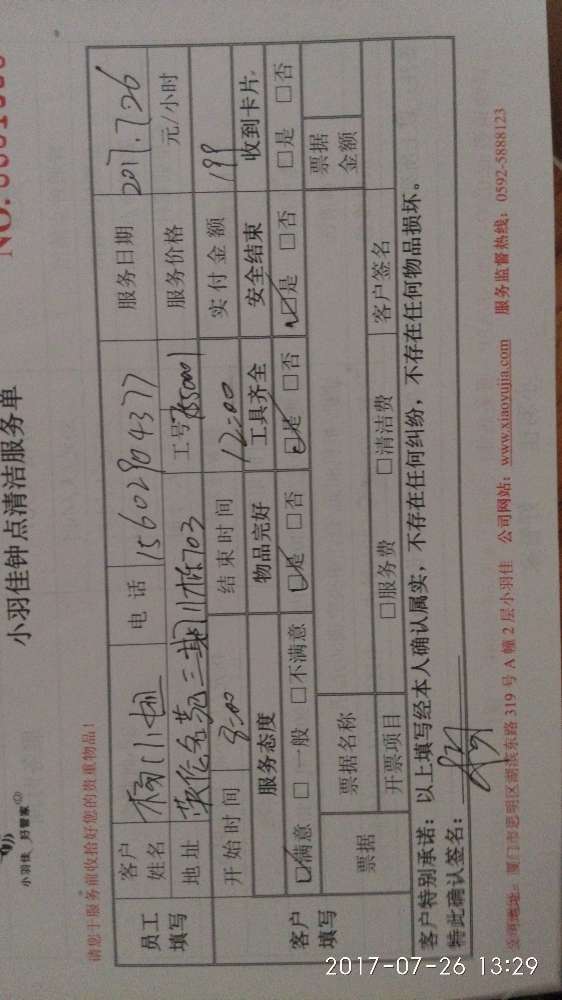 小羽佳 好管家
小羽佳钟点清洁服务单
NO.
请您于服务前收拾好您的贵重物品！
员工填写 客户姓名 杨小姐 电话 15602904377 服务日期 2017.7.26
地址 英伦名苑三期 703 工号 服务价格 元/小时
开始时间 8:00 结束时间 12:00 实付金额 199
客户填写 服务态度 物品完好 工具齐全 安全结束 收到卡片
☑满意 □一般 □不满意 ☑是 □否 ☑是 □否 ☑是 □否 □是 □否
票据 票据名称 票据金额
开票项目 □服务费 □清洁费 客户签名
客户特别承诺：以上填写经本人确认属实，不存在任何纠纷，不存在任何物品损坏。
特此确认签名：杨
公司地址：厦门市思明区湖滨东路 319 号 A 幢 2 层小羽佳 公司网站：www.xiaoyujia.com 服务监督热线：0592-5888123
2017-07-26 13:29